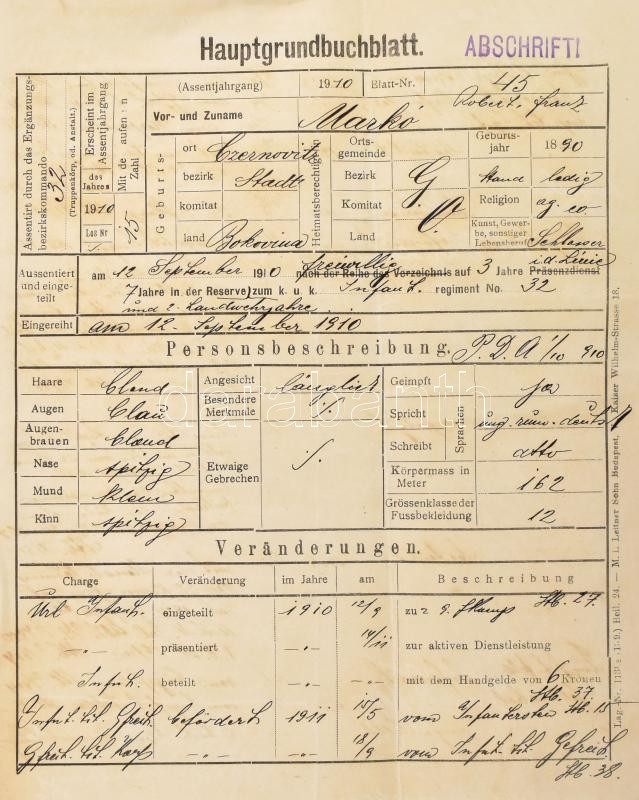 Hauptgrundbuchblatt. ABSCHRIFT!
Assentirt durch das Ergänzungs-bezirkskommando 32
(Truppenkörp. od. Anstalt.)
Erscheint im Assentjahrgang
des Jahres
1910
Los Nr
15
Zahl
(Assentjahrgang) 1910 Blatt-Nr. 45
Vor- und Zuname Markó Robert, Franz
Geburts-
ort Czernovitz
bezirk Stadt
komitat
land Bokovina
Heimatsberechtigt in
Orts-gemeinde
Bezirk G.
Komitat O.
Land
Geburts-jahr 1890
Stand ledig
Religion ag. ev.
Kunst, Gewer-be, sonstiger Lebensberuf Schlosser
Aussentiert und einge-teilt
am 12 September 1910 freiwillig nach der Reihe des Verzeichnis auf 3 Jahre Präsenzdienst i. d. Linie
7 Jahre in der Reserve) zum k. u. k. Infant. regiment No. 32
und 2 Landwehrjahre
Eingereiht am 12. September 1910
Personsbeschreibung. P. D. A 1/10 910
Haare blond
Augen blau
Augen-brauen blond
Nase spitzig
Mund klein
Kinn spitzig
Angesicht länglich
Besondere Merkmale ./.
Etwaige Gebrechen ./.
Geimpft ja
Sprachen
Spricht ung. rum. deutsch
Schreibt dtto
Körpermass in Meter 162
Grössenklasse der Fussbekleidung 12
Veränderungen.
Charge Veränderung im Jahre am Beschreibung
Infant. eingeteilt 1910 12/9 zu 2 9. Fkomp Stb. 27.
-„- präsentiert -„- 14/11 zur aktiven Dienstleistung
Infant. beteilt -„- mit dem Handgelde von 6 Kronen
Stb. 37.
Infant. tit. Gfreit. befördert 1911 15/5 vom Infanteristen Stb. 18
Gfreit. tit. Korp -„- -„- 18/9 vom Infnt. tit. Gefreit.
Stb. 38.
M. I. Leitner Sohn Budapest, Kaiser Wilhelm-Strasse 18.
darabanth